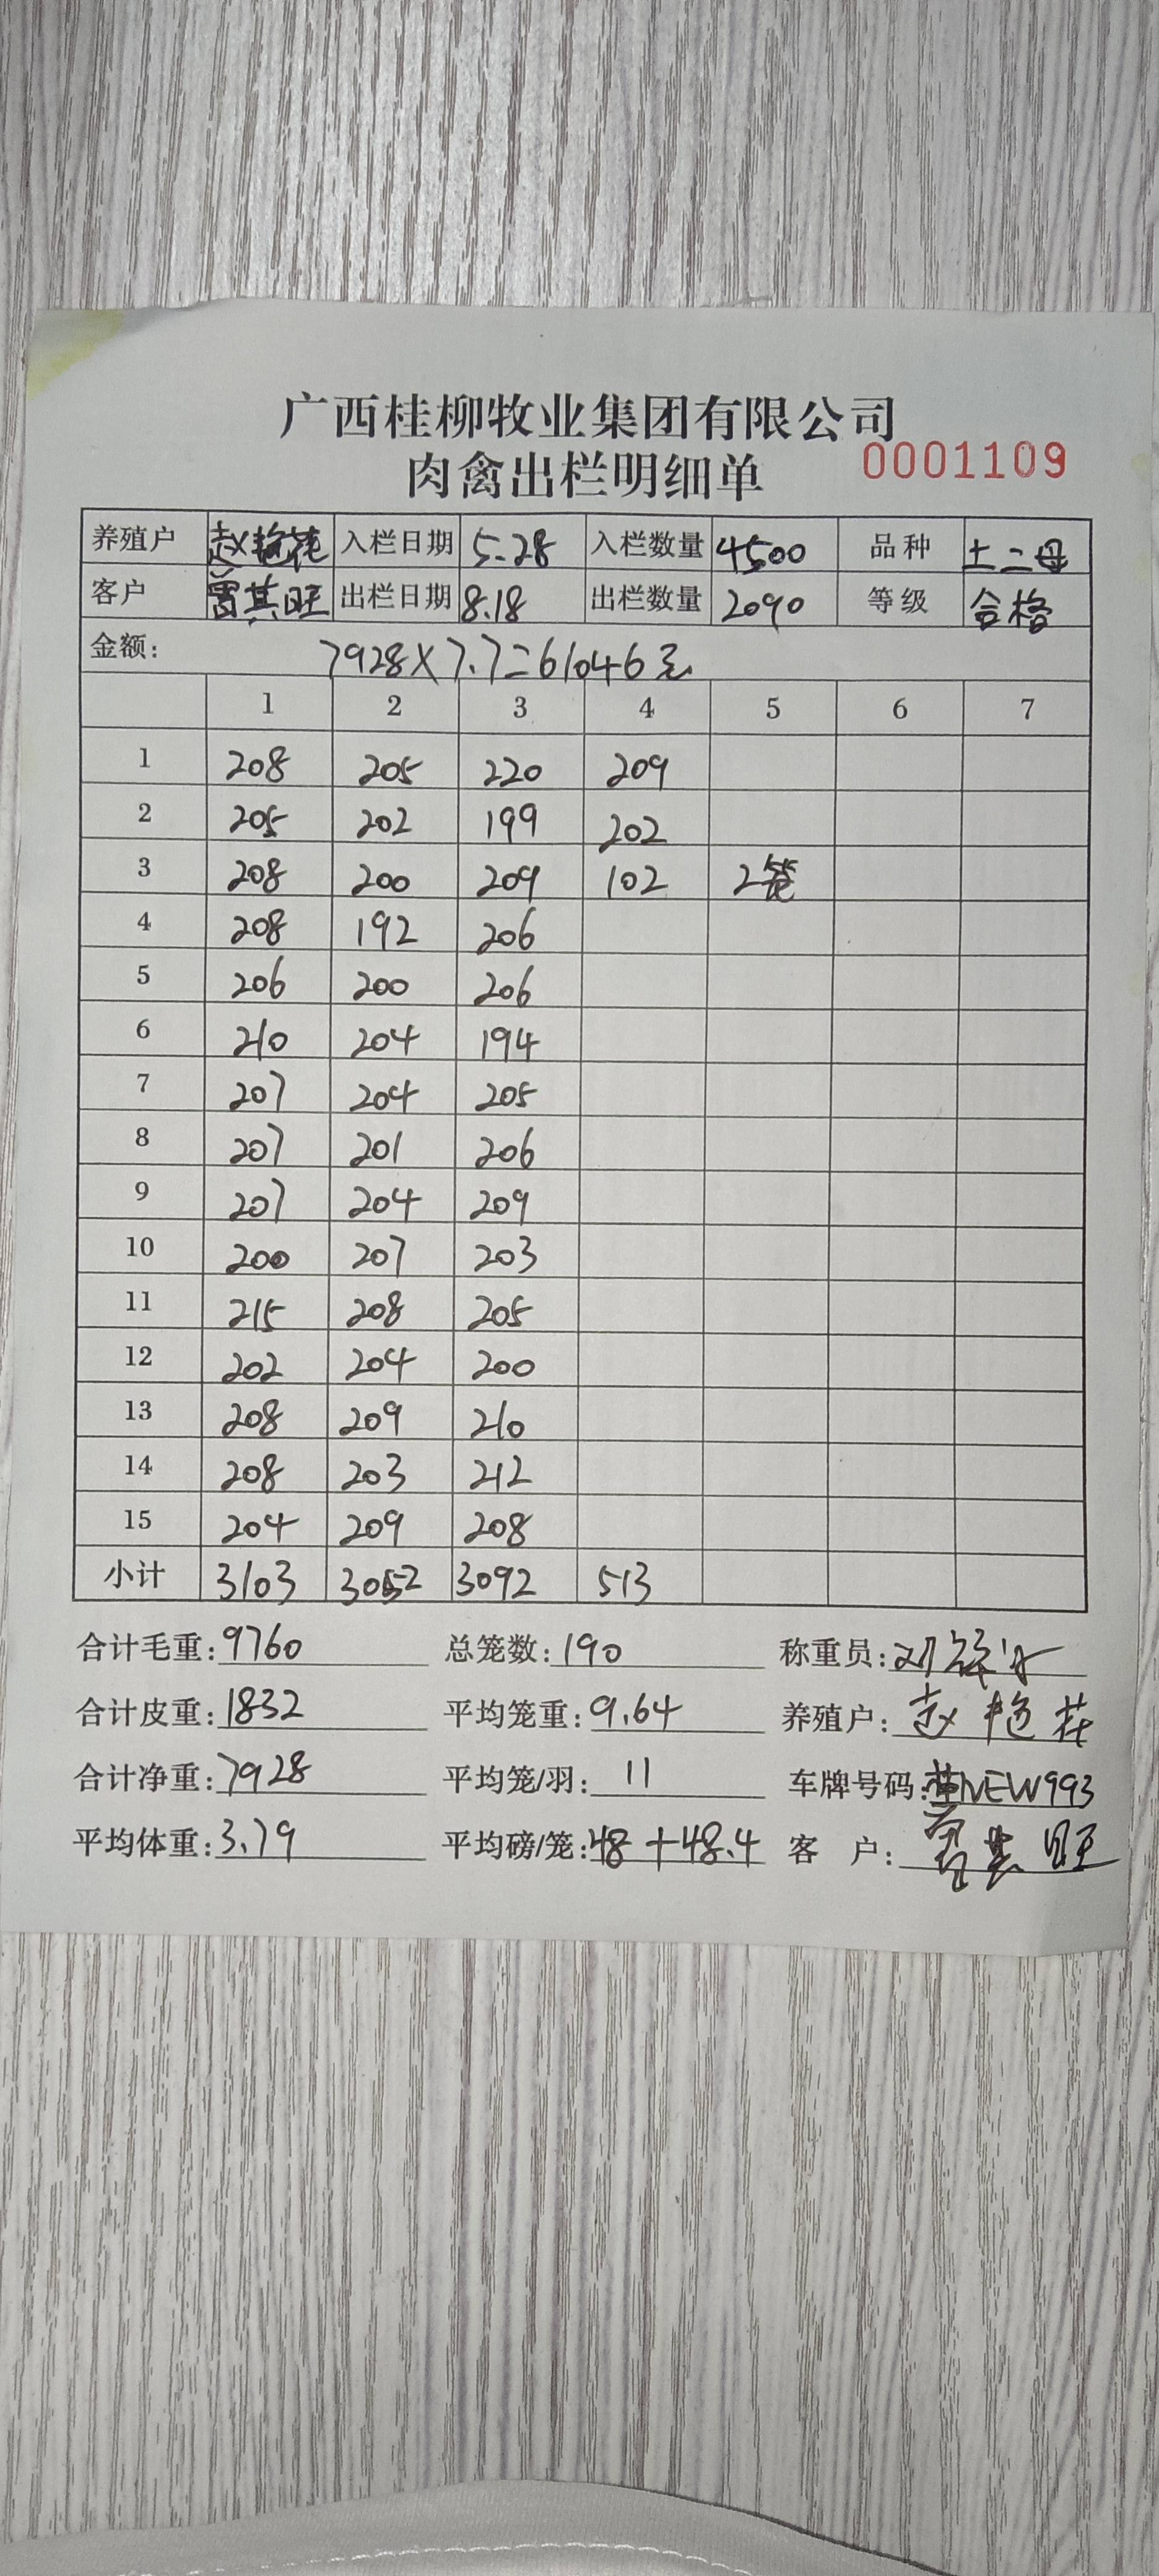 广西桂柳牧业集团有限公司
肉禽出栏明细单 0001109
养殖户 赵艳花 入栏日期 5-28 入栏数量 4500 品种 土二母
客户 曾其旺 出栏日期 8.18 出栏数量 2090 等级 合格
金额: 7928×7.7=61046元
1 2 3 4 5 6 7
1 208 205 220 209
2 205 202 199 202
3 208 200 209 102 2笼
4 208 192 206
5 206 200 206
6 210 204 194
7 207 204 205
8 207 201 206
9 207 204 209
10 200 207 203
11 215 208 205
12 202 204 200
13 208 209 210
14 208 203 212
15 204 209 208
小计 3103 3052 3092 513
合计毛重: 9760 总笼数: 190 称重员:
合计皮重: 1832 平均笼重: 9.64 养殖户: 赵艳花
合计净重: 7928 平均笼/羽: 11 车牌号码: NEW993
平均体重: 3.79 平均磅/笼: 48+48.4 客 户: 曾其旺